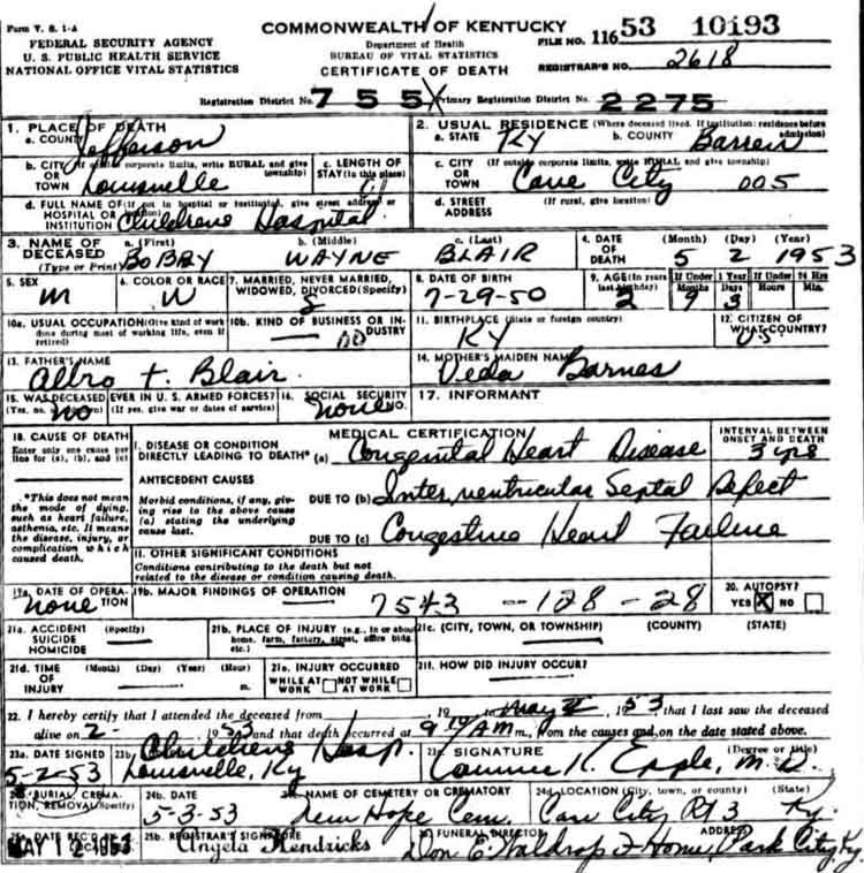 Form V. S. 1-A
COMMONWEALTH OF KENTUCKY
FILE NO. 116 53 10193
FEDERAL SECURITY AGENCY
U. S. PUBLIC HEALTH SERVICE
NATIONAL OFFICE VITAL STATISTICS
Department of Health
BUREAU OF VITAL STATISTICS
CERTIFICATE OF DEATH
REGISTRAR'S NO. 2618
Registration District No. 755 Primary Registration District No. 2275
1. PLACE OF DEATH
a. COUNTY Jefferson
2. USUAL RESIDENCE (Where deceased lived. If institution: residence before admission)
a. STATE Ky b. COUNTY Barren
b. CITY (If outside corporate limits, write RURAL and give township) OR TOWN Louisville
c. LENGTH OF STAY (in this place)
c. CITY (If outside corporate limits, write RURAL and give township) OR TOWN Cave City 005
d. FULL NAME OF (If not in hospital or institution, give street address or location) HOSPITAL OR INSTITUTION Childrens Hospital
d. STREET ADDRESS (If rural, give location)
3. NAME OF DECEASED (Type or Print) a. (First) BOBBY b. (Middle) WAYNE c. (Last) BLAIR
4. DATE OF DEATH (Month) (Day) (Year) 5 2 1953
5. SEX M
6. COLOR OR RACE W
7. MARRIED, NEVER MARRIED, WIDOWED, DIVORCED (Specify) S
8. DATE OF BIRTH 7-29-50
9. AGE (In years last birthday) 2 If Under 1 Year Months 9 Days 3 If Under 24 Hrs Hours Min.
10a. USUAL OCCUPATION (Give kind of work done during most of working life, even if retired)
10b. KIND OF BUSINESS OR INDUSTRY
11. BIRTHPLACE (State or foreign country) KY
12. CITIZEN OF WHAT COUNTRY? US
13. FATHER'S NAME
Albro t. Blair
14. MOTHER'S MAIDEN NAME
Veda Barnes
15. WAS DECEASED EVER IN U. S. ARMED FORCES? (Yes, no, or unknown) (If yes, give war or dates of service) no
16. SOCIAL SECURITY NO. none
17. INFORMANT
18. CAUSE OF DEATH
Enter only one cause per line for (a), (b), and (c)
MEDICAL CERTIFICATION
INTERVAL BETWEEN ONSET AND DEATH
I. DISEASE OR CONDITION DIRECTLY LEADING TO DEATH* (a) Congenital Heart Disease 3 yrs
*This does not mean the mode of dying, such as heart failure, asthenia, etc. It means the disease, injury, or complication which caused death.
ANTECEDENT CAUSES
Morbid conditions, if any, giving rise to the above cause (a) stating the underlying cause last.
DUE TO (b) Inter ventricular Septal Defect
DUE TO (c) Congestive Heart Failure
II. OTHER SIGNIFICANT CONDITIONS
Conditions contributing to the death but not related to the disease or condition causing death.
19a. DATE OF OPERATION none
19b. MAJOR FINDINGS OF OPERATION 7543 - 128 - 28
20. AUTOPSY? YES X NO
21a. ACCIDENT SUICIDE HOMICIDE (Specify)
21b. PLACE OF INJURY (e.g., in or about home, farm, factory, street, office bldg. etc.)
21c. (CITY, TOWN, OR TOWNSHIP) (COUNTY) (STATE)
21d. TIME OF INJURY (Month) (Day) (Year) (Hour) m.
21e. INJURY OCCURRED WHILE AT WORK NOT WHILE AT WORK
21f. HOW DID INJURY OCCUR?
22. I hereby certify that I attended the deceased from , 19 to May 2, 1953 that I last saw the deceased
alive on 2- 1953 and that death occurred at AM m., from the causes and on the date stated above.
23a. DATE SIGNED 5-2-53
23b. Childrens Hosp. Louisville, Ky
23c. SIGNATURE (Degree or title) K. Epple, M.D.
24a. BURIAL, CREMATION, REMOVAL (Specify)
24b. DATE 5-3-53
24c. NAME OF CEMETERY OR CREMATORY New Hope Cem.
24d. LOCATION (City, town, or county) (State) Cave City Rt 3 Ky.
25a. DATE REC'D MAY 12 1953
25b. REGISTRAR'S SIGNATURE Angela Hendricks
26. FUNERAL DIRECTOR ADDRESS Don E. Waldrop F Home, Park City, Ky.